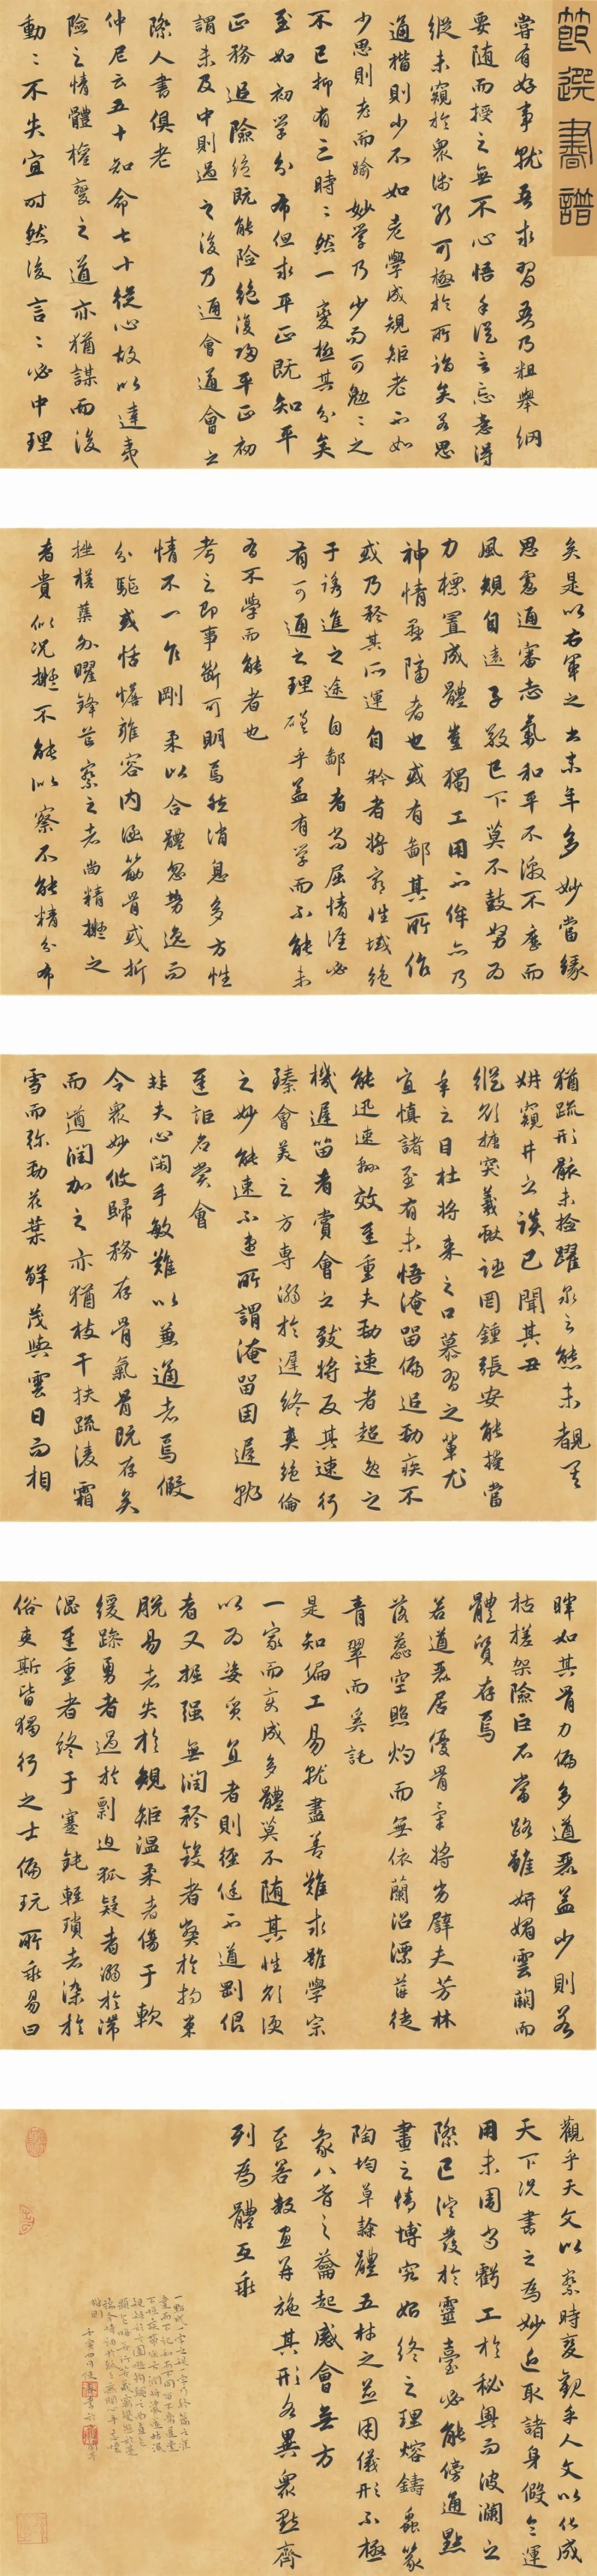 節選書譜
嘗有好事就吾求習吾乃粗舉綱
要随而授之無不心悟手從言忘意得
縱未窺於衆術断可極於所詣矣若思
通楷則少不如老學成規矩老不如
少思則老而逾妙學乃少而可勉〻之
不已抑有三時〻然一變極其分矣
至如初学分布但求平正既知平
正務追險絕既能險絕復歸平正初
謂未及中則過之後乃通會通會之
際人書俱老
仲尼云五十知命七十從心故以達夷
險之情體權變之道亦猶謀而後
動〻不失宜时然後言〻必中理
矣是以右軍之書末年多妙當緣
思慮通審志氣和平不激不厲而
風規自遠子敬已下莫不鼓努为
力標置成體豈獨工用不侔亦乃
神情懸隔者也或有鄙其所作
或乃矜其所運自矜者將窮性域絕
于誘進之途自鄙者尚屈情涯必
有可通之理嗟乎蓋有学而不能未
有不學而能者也
考之即事斷可明焉然消息多方性
情不一乍剛柔以合體忽勞逸而
分驅或恬憺雍容内涵筋骨或折
挫槎蘖外曜鋒芒察之者尚精擬之
者貴似况擬不能似察不能精分布
猶疏形骸未檢躍泉之態未覩其
妍窺井之談已聞其丑
縱欲搪突羲獻誣罔鍾張安能掩當
年之目杜將来之口慕習之輩尤
宜慎諸至有未悟淹留偏追勁疾不
能迅速翻效遲重夫勁速者超逸之
機遲留者賞會之致將反其速行
臻會美之方專溺於遲終爽絕倫
之妙能速不速所謂淹留因遲就
遲詎名賞會
非夫心閑手敏難以兼通者焉假
令衆妙攸歸務存骨氣骨既存矣
而遒潤加之亦猶枝干扶疏淩霜
雪而弥勁花葉鮮茂與雲日而相
暉如其骨力偏多遒麗蓋少則若
枯槎架險巨石當路雖妍媚雲闕而
體質存焉
若遒麗居優骨氣將劣譬夫芳林
落蕊空照灼而無依蘭沼漂萍徒
青翠而奚託
是知偏工易就盡善難求雖學宗
一家而变成多體莫不随其性欲便
以为姿質直者則徑侹不遒剛佷
者又掘强無潤矜斂者弊於拘束
脱易者失於規矩温柔者傷于軟
緩躁勇者過於剽迫狐疑者溺於滞
澀遲重者終于蹇鈍輕瑣者染於
俗吏斯皆獨行之士偏玩所乖易曰
觀乎天文以察時变觀乎人文以化成
天下况書之為妙近取諸身假令運
用未周尚虧工於秘奧而波瀾之
際已濬發於靈臺必能傍通點
畫之情博究始終之理熔鑄蟲篆
陶均草隸體五材之並用儀形不極
象八音之迭起感會無方
至若数畫并施其形各異衆點齊
列為體互乖
一點成一字之規一字乃終篇之准